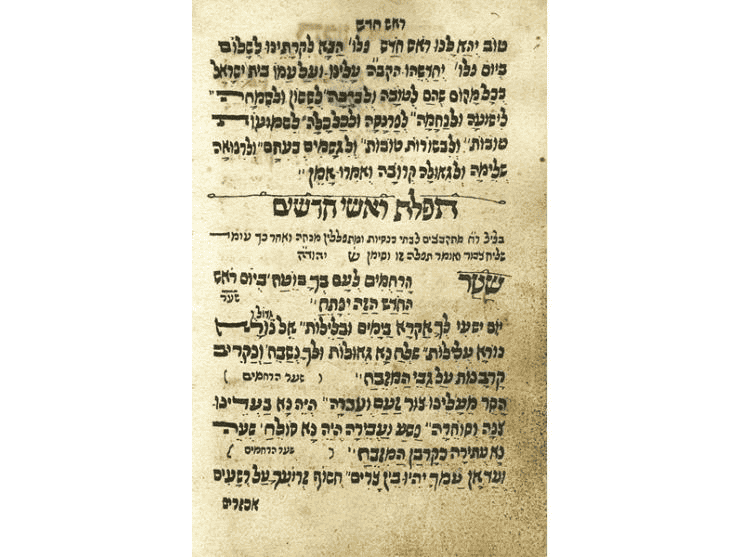 ראש חדש
טוב יהא לנו ראש חדש פלו׳ הבא לקראתינו לשלום
ביום פלו׳ יחדשהו הקב״ה עלינו ועל עמו בית ישראל
בכל מקום שהם לטובה ולברכה לששון ולשמחה
לישועה ולנחמה לפרנסה ולכלכלה לשמועות
טובות ולבשורות טובות ולגשמים בעתם ולרפואה
שלימה ולגאולה קרובה ואמרו אמן
תפלת ראשי חדשים
בליל ר״ח מתקבצים לבתי כנסיות ומתפללין מנחה ואחר כך עומד
שליח צבור ואומר תפלה זו וסימן ש יהודה
שער הרחמים לעם בך בוטח ביום ראש
החדש הזה יפתח שער
יום ישעי לך אקרא בימים ובלילות אל נורא גדולן
נורא עלילות שלח נא גאולות ולך נשבח ונקריב
קרבנות על גבי המזבח שער הרחמים
הסר מעלינו צור זעם ועברה היה נא בעדינו
צנה וסוחרה פשע ועבירה היה נא סולח שעה
נא עתירה כקרבן המזבח שער הרחמים
ועד אן עמך יהיו בין צרים חשוף זרועך על רשעים
אכזרים